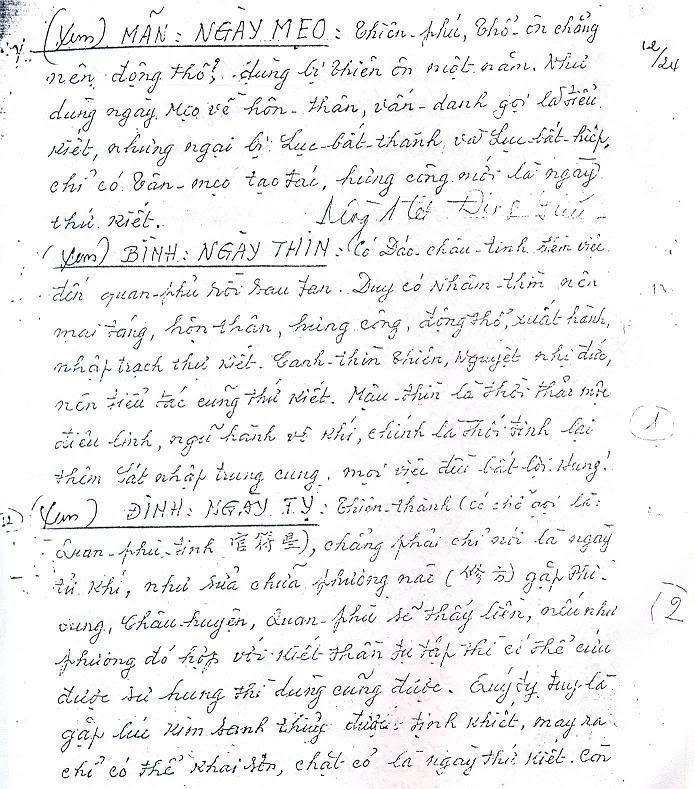 (Xem) MÃN: NGÀY MẸO: Thiên-phú, Thổ-ôn chẳng 12/24
nên động thổ, dùng bị thiên ôn một năm. Như
dùng ngày Mẹo về hôn-thân, vấn-danh gọi là tiểu
kiết, nhưng ngại bị Lục-bất-thành và Lục-bất-hiệp,
chỉ có Tân-mẹo tạo tác, hưng công mới là ngày
thứ kiết.
(Xem) BÌNH: NGÀY THÌN: Có Đáo-châu-tinh đêm việc
đến quan-phủ rồi sau tan. Duy có Nhâm-thìn nên
mai táng, hôn thân, hưng công, động thổ, xuất hành,
nhập trạch thứ kiết. Canh-thìn Thiên, Nguyệt nhị đức,
nên tiểu tác cũng thứ kiết. Mậu-thìn là thời thảo mộc
điêu linh, ngũ hành vô khí, chính là thối tinh lại 1
thêm Sát nhập trung cung, mọi việc đều bất lợi. Hung!
12 (Xem) ĐỊNH: NGÀY TỴ: Thiên-thành (có chỗ gọi là:
Quan-phù-tinh 官符星), chẳng phải chỉ nói là ngày
tử khí, như sửa chữa phương nào (修方) gặp Phi-
cung, Châu-huyện, Quan-phù sẽ thấy liền, nếu như 2
phương đó hợp với kiết thần tụ tập thì có thể cứu
được sự hung thì dùng cũng được. Quý tỵ tuy là
gặp lúc kim sanh thủy được tinh khiết, may ra
chỉ có thể khai sơn, chặt cỏ là ngày thứ kiết. Còn